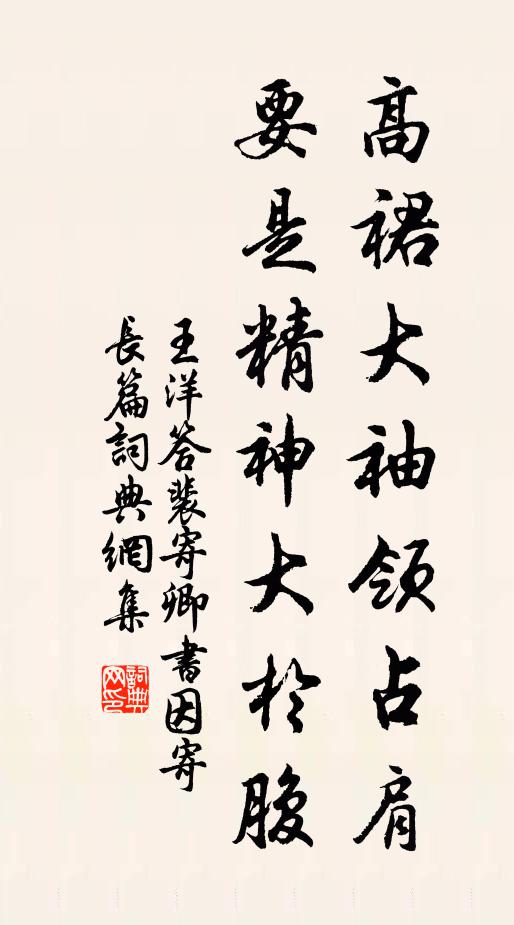 高裙大袖領占肩
要是精神大於腹
王洋答裴寄卿書因寄
長篇詞典網集
詞典
网印